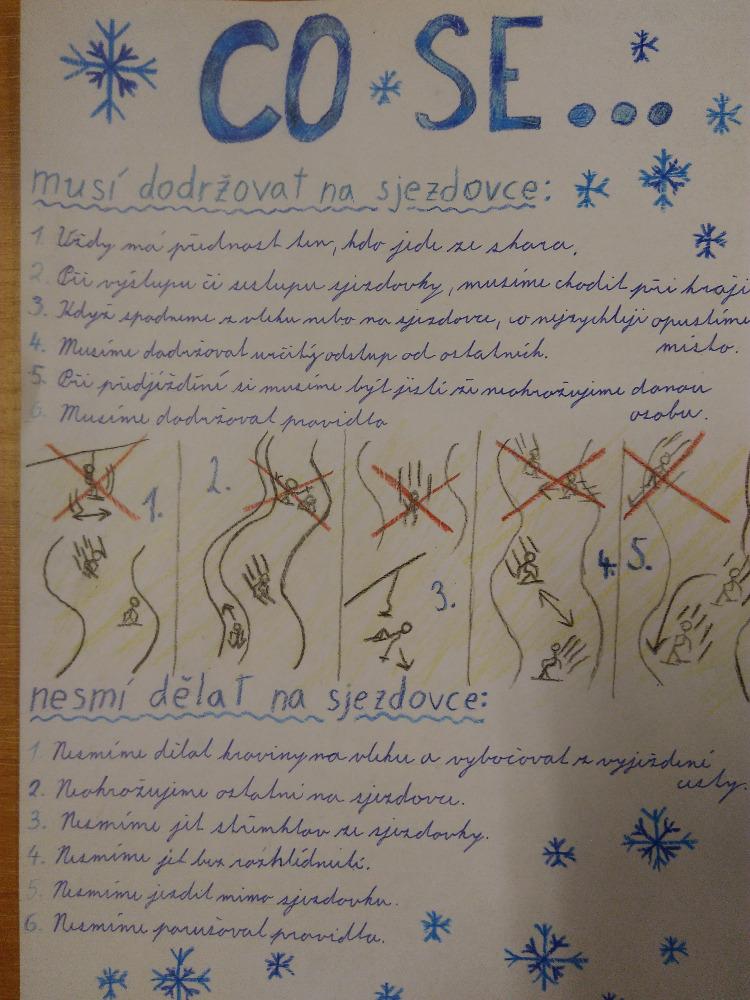 CO SE...
musí dodržovat na sjezdovce:
1. Vždy má přednost ten, kdo jede ze shora.
2. Při výstupu či sestupu sjezdovky, musíme chodit při kraji
3. Když spadneme z vleku nebo na sjezdovce, co nejrychleji opustíme
místo.
4. Musíme dodržovat určitý odstup od ostatních.
5. Při předjíždění si musíme být jistí že neohrožujeme danou
osobu.
6. Musíme dodržovat pravidla
1.
2.
3.
4.
5.
nesmí dělat na sjezdovce:
1. Nesmíme dělat kraviny na vleku a vybočovat z vyježdění
cesty.
2. Neohrožujeme ostatní na sjezdovce.
3. Nesmíme jet střemhlav ze sjezdovky.
4. Nesmíme jet bez rozhlídnutí.
5. Nesmíme jezdit mimo sjezdovku.
6. Nesmíme porušovat pravidla.